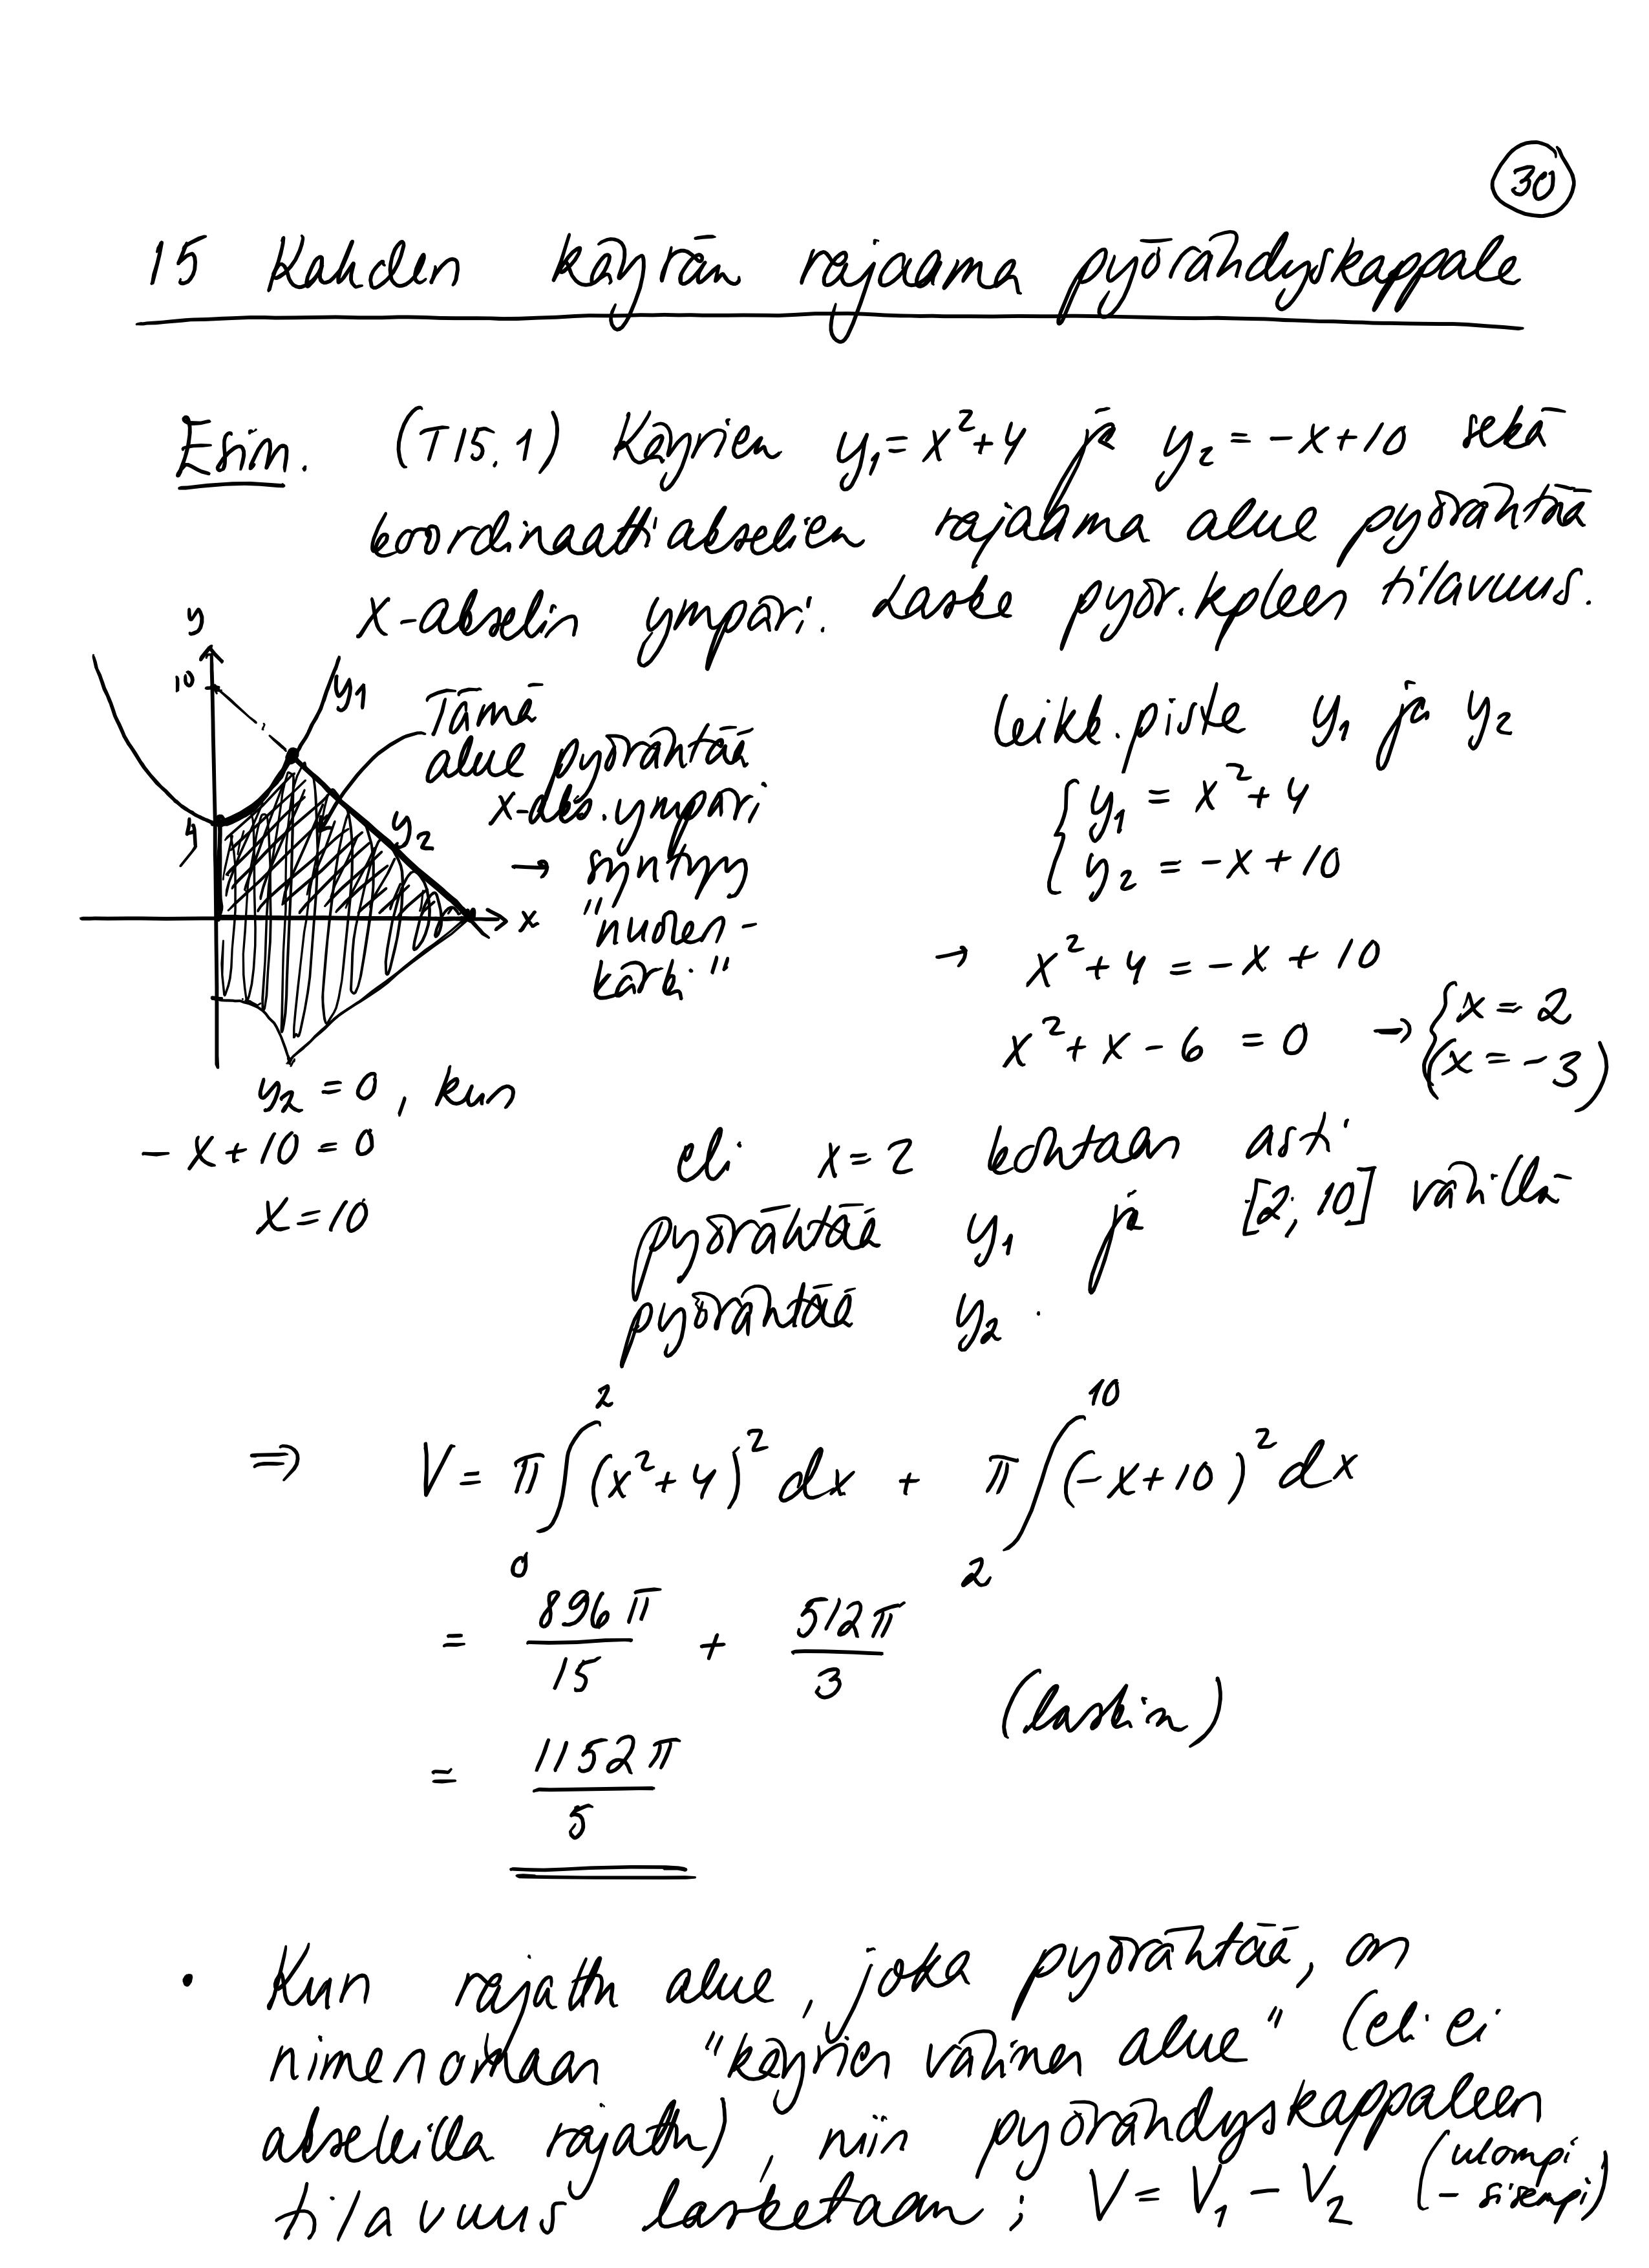 30
15 Kahden käyrän rajaama pyörähdyskappale
Esim. (T15.1) Käyrien y₁ = x²+4 ja y₂ = -x+10 sekä
koordinaattiakselien rajaama alue pyörähtää
x-akselin ympäri. Laske pyör.kpleen tilavuus.
y
10
y₁
4
y₂
x
Tämä
alue pyörähtää
x-aks. ympäri
→ syntyy
"nuolen-
kärki"
y₂ = 0, kun
-x+10 = 0
x = 10
leikk.piste y₁ ja y₂
{ y₁ = x²+4
y₂ = -x+10
→ x²+4 = -x+10
x²+x-6 = 0 → { x = 2
(x = -3)
eli x=2 kohtaan asti
pyörähtää y₁ ja [2; 10] välillä
pyörähtää y₂.
⇒ V = π∫₀² (x²+4)² dx + π∫₂¹⁰ (-x+10)² dx
= 896π/15 + 512π/3
(laskin)
= 1152π/5
• Kun rajattu alue, joka pyörähtää, on
nimenomaan "käyrien välinen alue" (eli ei
akseleilla rajattu), niin pyörähdyskappaleen
tilavuus lasketaan; V = V₁ - V₂ (ulompi
- sisempi)